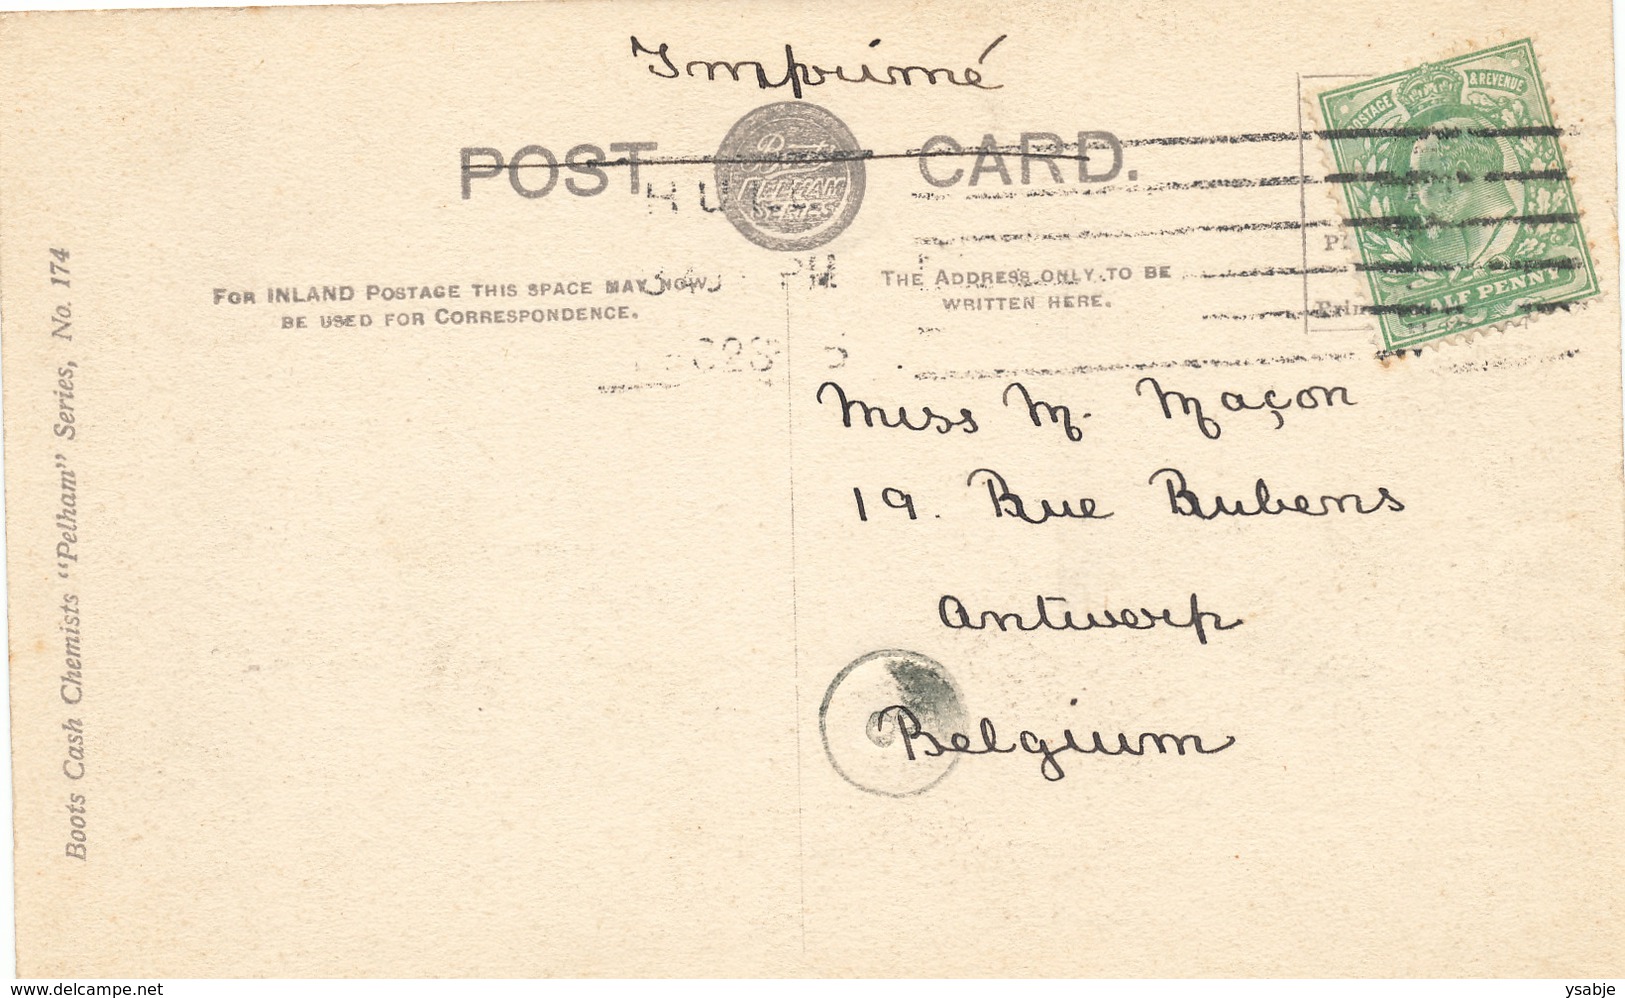 Imprimé
POST CARD.
Boots
PELHAM
SERIES
HULL
POSTAGE & REVENUE
HALF PENNY
PM
FOR INLAND POSTAGE THIS SPACE MAY NOW
BE USED FOR CORRESPONDENCE.
THE ADDRESS ONLY TO BE
WRITTEN HERE.
Miss M. Maçon
19. Rue Rubens
Antwerp
Belgium
Boots Cash Chemists "Pelham" Series, No. 174
delcampe.net
ysabje